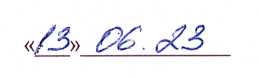 «13» 06. 23